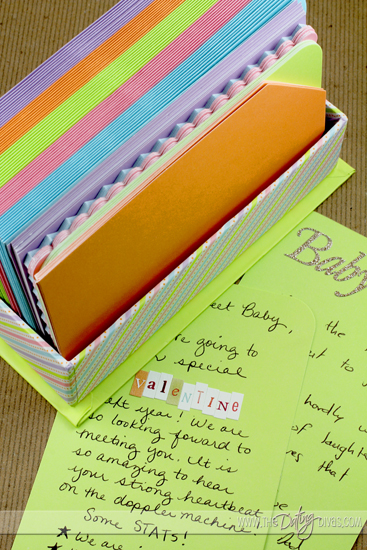 Baby
eet Baby,
re going to
special
VALENTINE
aft year! We are
so looking forward to
meeting you. It is
so amazing to hear
your strong heartbeat
on the doppler machine!
Some STATS!
★ we are
the
ut to
hondly w
of laughte
es that
WWW.THEDatingDIVAS.COM